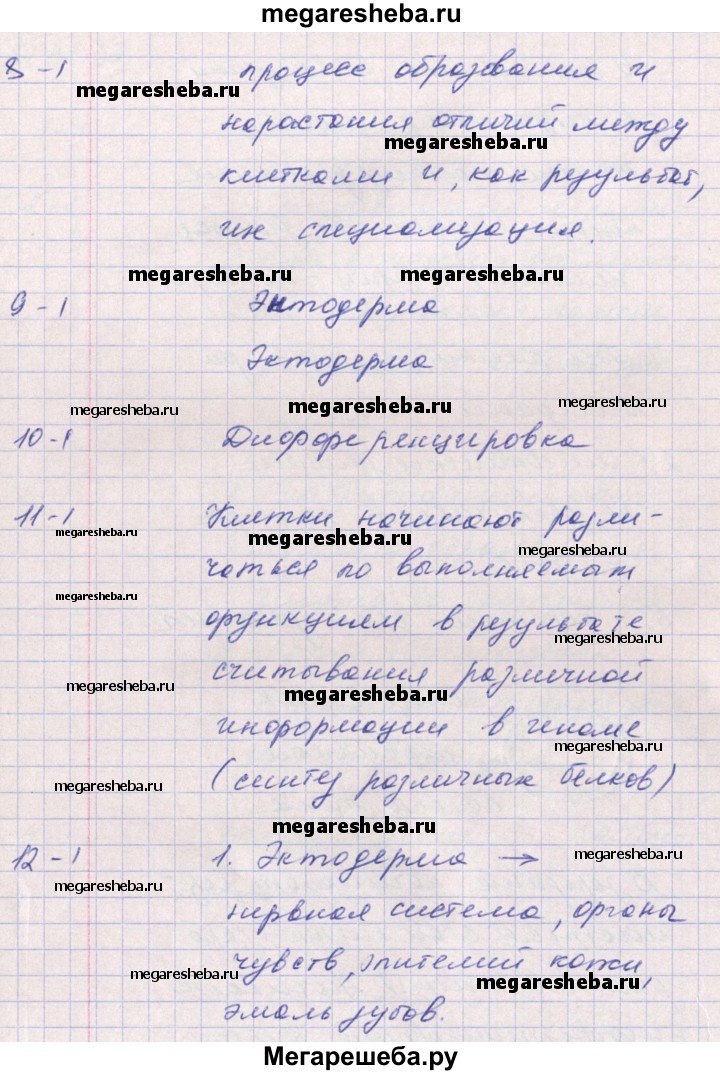 megaresheba.ru
8 - 1 процесс образования и
megaresheba.ru
нарастания отличий между
megaresheba.ru
клетками и, как результат,
их специализация.
megaresheba.ru megaresheba.ru
9 - 1 Энтодерма
Эктодерма
megaresheba.ru megaresheba.ru megaresheba.ru
10-1 Дифференцировка
11-1 Клетки начинают разли-
megaresheba.ru megaresheba.ru megaresheba.ru
чаться по выполняемым
megaresheba.ru
функциям в результате
megaresheba.ru
считывания различной
megaresheba.ru megaresheba.ru
информации в геноме
megaresheba.ru
(синтез различных белков)
megaresheba.ru
megaresheba.ru
12 - 1 1. Эктодерма →
megaresheba.ru
megaresheba.ru
нервная система, органы
чувств, эпителий кожи,
megaresheba.ru megaresheba.ru
эмаль зубов.
Мегарешеба.ру